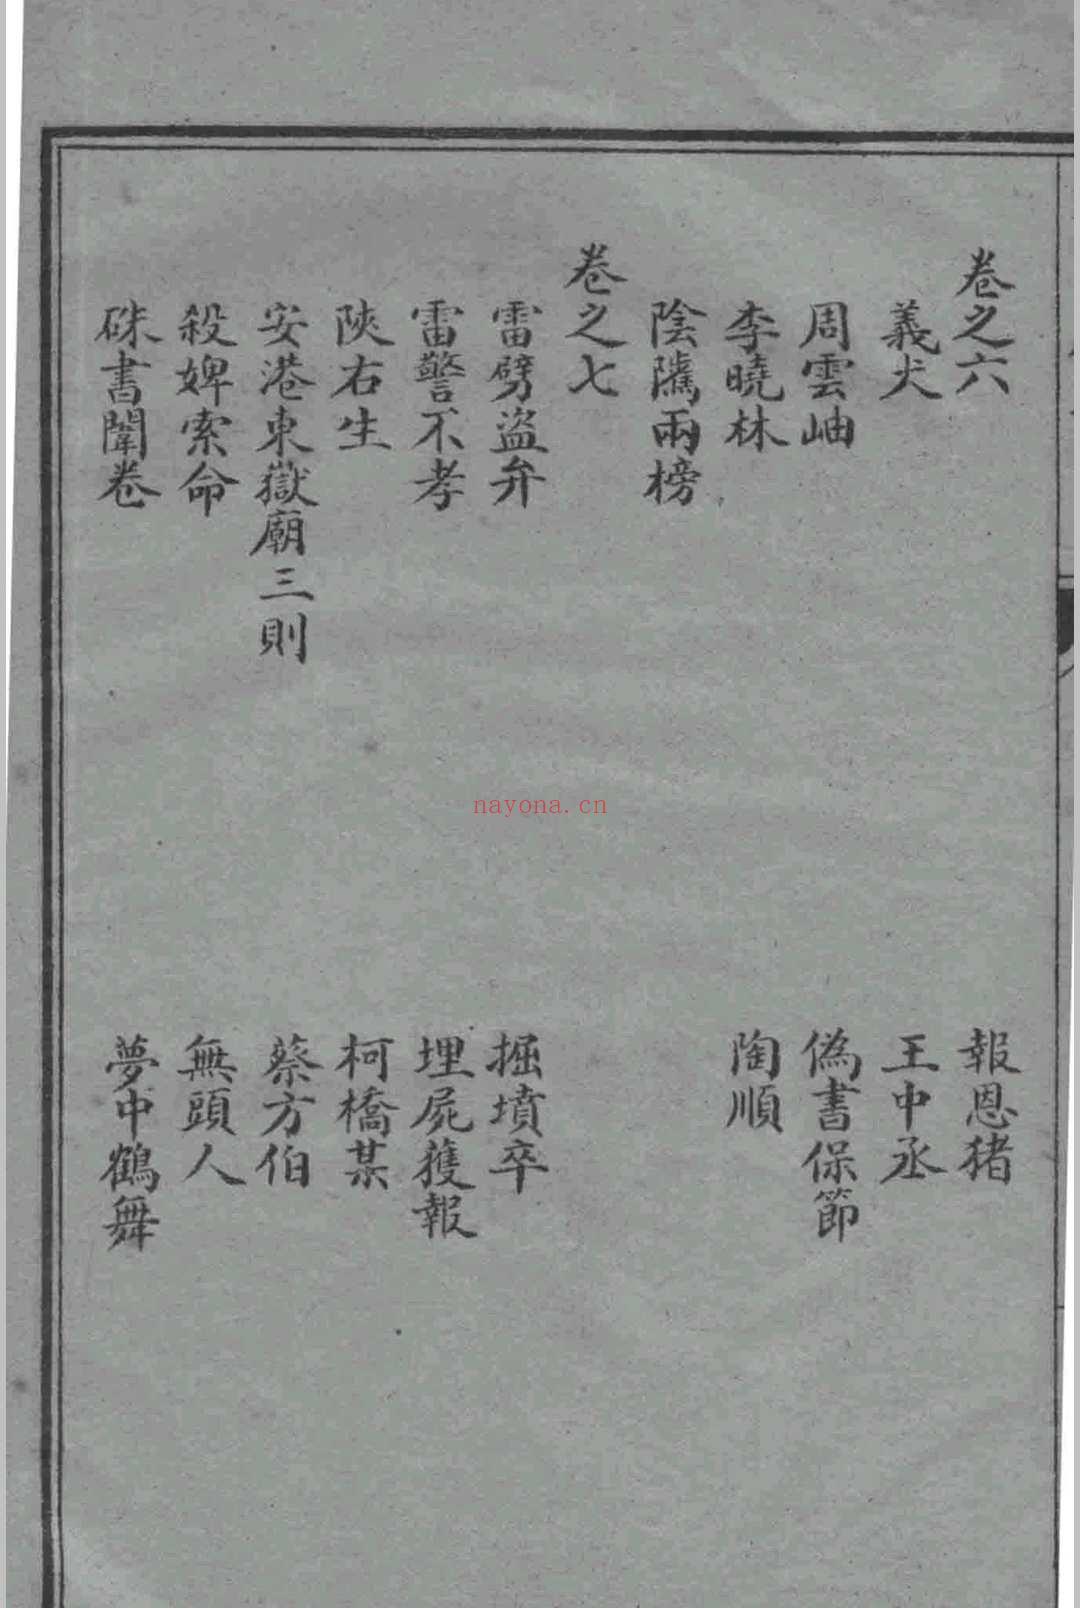 卷之六
報恩猪
義犬
王中丞
周雲岫
偽書保節
李曉林
陶順
陰隲兩榜
卷之七
雷劈盜弁
掘墳卒
雷警不孝
埋屍獲報
陝右生
柯橋某
安港東嶽廟三則
蔡方伯
殺婢索命
無頭人
硃書闈卷
夢中鶴舞
nayona.cn